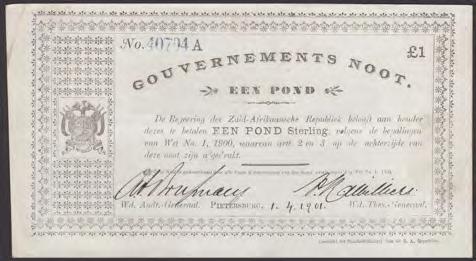 No. 40794 A
£1
GOUVERNEMENTS NOOT.
EEN POND
De Regeering der Zuid-Afrikaansche Republiek belooft aan houder
dezes te betalen EEN POND Sterling, volgens de bepalingen
van Wet No. 1, 1900, waarvan artt. 2 en 3 op de achterzijde van
deze noot zijn
Wd. Audt.-Generaal. PIETERSBURG, 1.4.1901. Wd. Thes.-Generaal.